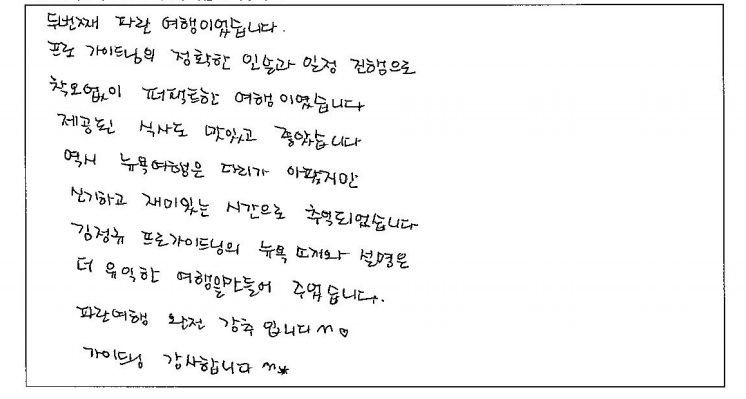 두번째 파란 여행이었습니다.
프로 가이드님의 정확한 인솔과 일정 진행으로
착오없이 퍼팩트한 여행이였습니다
제공된 식사도 맛있고 좋았습니다
역시 뉴욕여행은 다리가 아팠지만
신기하고 재미있는 시간으로 추억되었습니다
김정규 프로가이드님의 뉴욕 설명은
더 유익한 여행을만들어 주었습니다.
파란여행 완전 강추 입니다 ~♡
가이드님 감사합니다 ~*